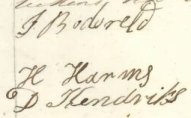 J Bodsveld
H Harms
D Hendriks